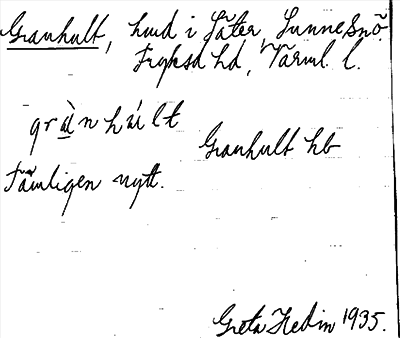 Granhult, hmd i Säter, Sunne snö.
Fryksd hd, Värml. l.
gràn húlt
Granhult hb
Tämligen nytt.
Greta Hedin 1935.